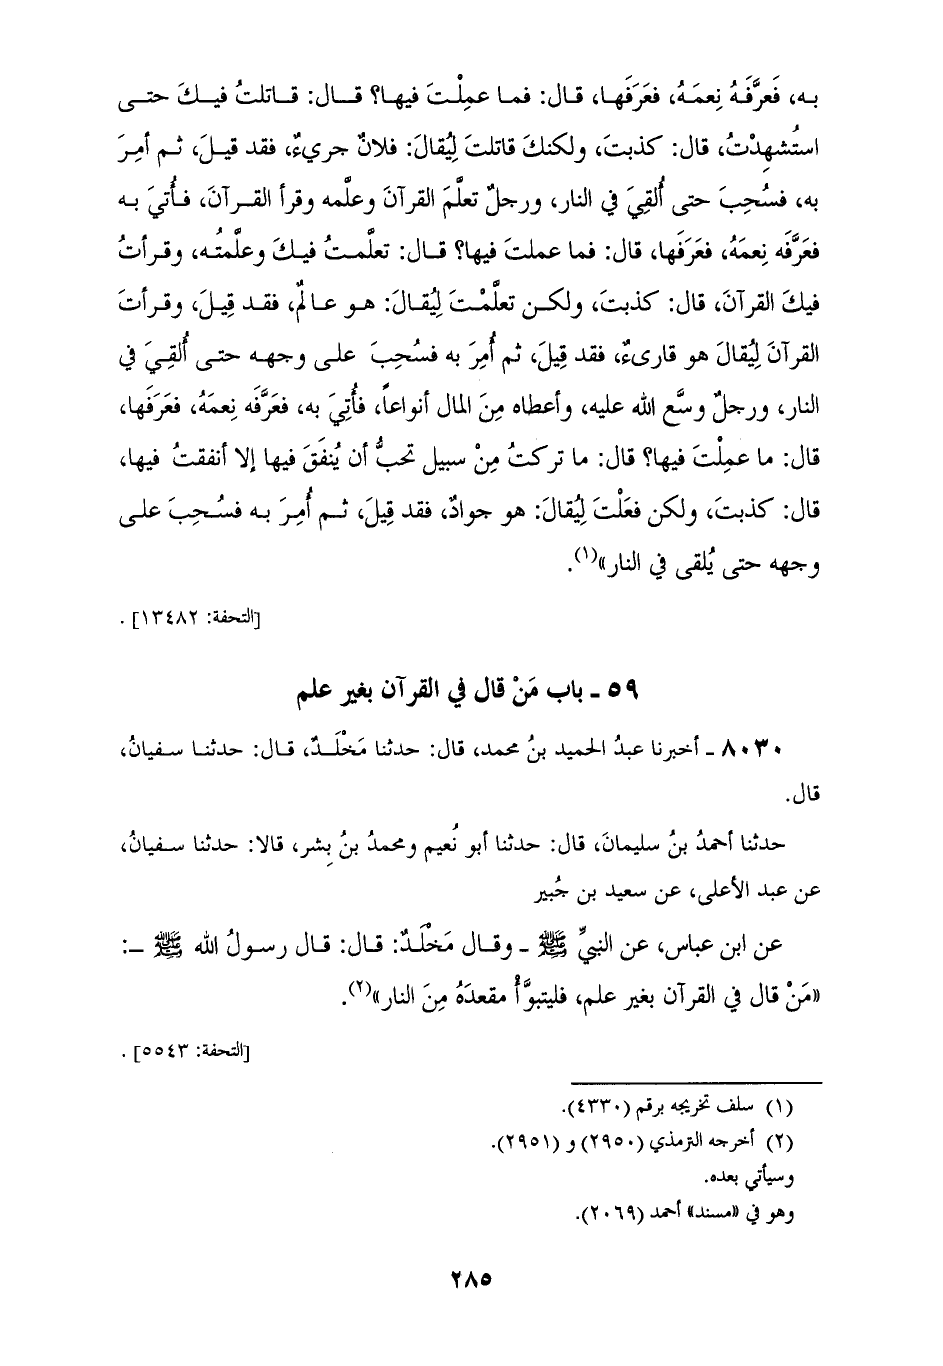 به، فَعرَّفَهُ نِعمَهُ، فعَرَفَها، قـال: فما عمِلْتَ فيهـا؟ قـــال: قــاتلتُ فيــكَ حتــى
استُشهِدْتُ، قال: كذبتَ، ولكنكَ قاتلتَ لِيُقالَ: فلانٌ جريءٌ، فقد قيـلَ، ثـم أُمِرَ
به، فسُحِبَ حتى أُلقِيَ في النار، ورجلٌ تعلَّمَ القرآنَ وعلَّمه وقرأ القـرآنَ، فـأُتيَ بـه
فعَرَّفَه نِعمَهُ، فعَرَفَها، قال: فما عملتَ فيها؟ قـال: تعلَّمـتُ فيـكَ وعلَّمتُـه، وقـرأتُ
فيكَ القرآنَ، قال: كذبتَ، ولكـن تعلَّمْـتَ لِيُقـالَ: هـو عـالمٌ، فقـد قِيـلَ، وقـرأتَ
القرآنَ لِيُقالَ هو قارىءٌ، فقد قِيلَ، ثم أُمِرَ به فسُحِبَ على وجهـه حتـى أُلقِـيَ في
النار، ورجلٌ وسَّع الله عليه، وأعطاه مِنَ المال أنواعاً، فأُتِيَ به، فعَرَّفَه نِعمَهُ، فعَرَفَها،
قال: ما عمِلْتَ فيها؟ قال: ما تركتُ مِنْ سبيل تحبُّ أن يُنفَقَ فيها إلا أنفقتُ فيها،
قال: كذبتَ، ولكن فعَلْتَ لِيُقالَ: هو جوادٌ، فقد قِيلَ، ثـم أُمِرَ بـه فسُـحِبَ علـى
وجهه حتى يُلقى في النار»(١).
[التحفة: ١٣٤٨٢] .
٥٩ ـ باب مَنْ قال في القرآن بغير علم
٨٠٣٠ ـ أخبرنا عبدُ الحميد بنُ محمد، قال: حدثنا مَخْلَـدٌ، قـال: حدثنـا سـفيانُ،
قال.
حدثنا أحمدُ بنُ سليمانَ، قال: حدثنا أبو نُعيم ومحمدُ بنُ بِشر، قالا: حدثنا سـفيانُ،
عن عبد الأعلى، عن سعيد بن جُبير
عن ابن عباس، عن النبيِّ ﷺ ـ وقـال مَخْلَـدٌ: قـال: قـال رسـولُ الله ﷺ ـ:
«مَنْ قال في القرآن بغير علم، فليتبوَّأْ مقعدَهُ مِنَ النار»(٢).
[التحفة: ٥٥٤٣] .
(١) سلف تخريجه برقم (٤٣٣٠).
(٢) أخرجه الترمذي (٢٩٥٠) و (٢٩٥١).
وسيأتي بعده.
وهو في «مسند» أحمد (٢٠٦٩).
٢٨٥